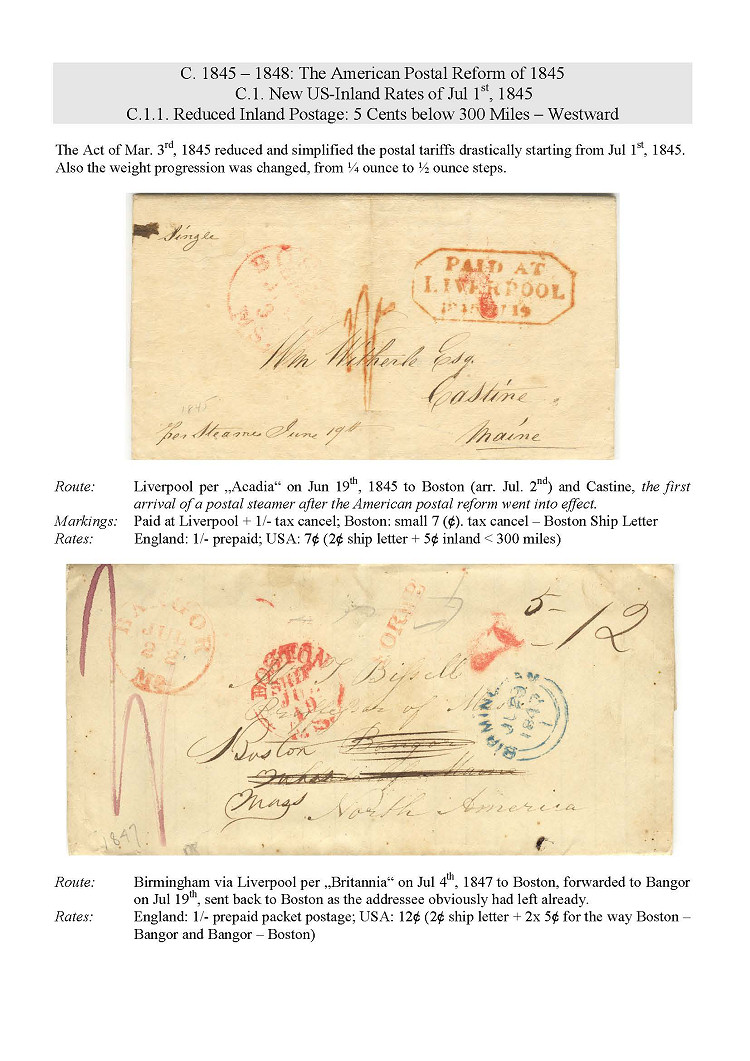 C. 1845 – 1848: The American Postal Reform of 1845
C.1. New US-Inland Rates of Jul 1st, 1845
C.1.1. Reduced Inland Postage: 5 Cents below 300 Miles – Westward
The Act of Mar. 3rd, 1845 reduced and simplified the postal tariffs drastically starting from Jul 1st, 1845.
Also the weight progression was changed, from ¼ ounce to ½ ounce steps.
Single
PAID AT
LIVERPOOL
19
Wm Witherle Esq.
Castine
Maine
1845
per Steamer June 19th
Route: Liverpool per „Acadia“ on Jun 19th, 1845 to Boston (arr. Jul. 2nd) and Castine, the first
arrival of a postal steamer after the American postal reform went into effect.
Markings: Paid at Liverpool + 1/- tax cancel; Boston: small 7 (¢). tax cancel – Boston Ship Letter
Rates: England: 1/- prepaid; USA: 7¢ (2¢ ship letter + 5¢ inland < 300 miles)
BANGOR
JUL
22
Me
BOSTON
SHIP
JUL
19
MS
7
5 - 12
BIRMINGHAM
1847
Bissell
of
Boston Bangor
Mass
North America
1847
Route: Birmingham via Liverpool per „Britannia“ on Jul 4th, 1847 to Boston, forwarded to Bangor
on Jul 19th, sent back to Boston as the addressee obviously had left already.
Rates: England: 1/- prepaid packet postage; USA: 12¢ (2¢ ship letter + 2x 5¢ for the way Boston –
Bangor and Bangor – Boston)